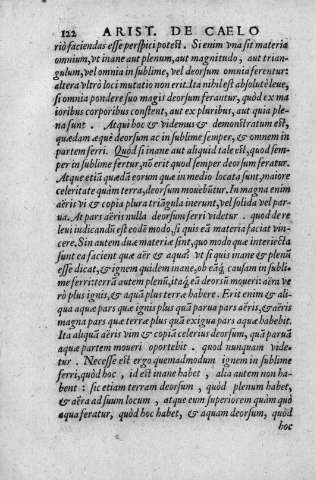 122 ARIST. DE CAELO
riò faciendas esse perspici potest. Si enim vna sit materia
omnium, vt inane aut plenum, aut magnitudo, aut trian-
gulum, vel omnia in sublime, vel deorsum omnia ferentur:
altera vltrò loci mutatio non erit. Ita nihil est absolutè leue,
si omnia pondere suo magis deorsum ferantur, quòd ex ma
ioribus corporibus constent, aut ex pluribus, aut quia ple-
na sunt. Atqui hoc & videmus & demonstratum est,
quædam æquè deorsum ac in sublime semper, & omnem in
partem ferri. Quòd si inane aut aliquid tale est, quod sem-
per in sublime fertur, nõ erit quod semper deorsum feratur.
Atque etiã quædã eorum quæ in medio locata sunt, maiore
celeritate quàm terra, deorsum mouebũtur. In magna enim
aëris vi & copia plura triãgula inerunt, vel solida vel par-
ua. At pars aëris nulla deorsum ferri videtur. quod de re
leui iudicandũ est eodẽ modo, si quis eã materia faciat vin-
cere. Sin autem duæ materiæ sint, quo modo quæ interiecta
sunt ea facient quæ aër & aqua? vt si quis inane & plenũ
esse dicat, & ignem quidem inane, ob eãq́; causam in subli-
me ferri: terrã autem plenũ, itaq́; eã deorsũ moueri: aëra ve
rò plus ignis, & aquã plus terræ habere. Erit enim & ali-
qua aquæ pars quæ ignis plus quã parua pars aëris, & aëris
magna pars quæ terræ plus quã exigua pars aquæ habebit.
Ita aliquã aëris vim & copiã celerius deorsum, quã paruã
aquæ partem moueri oportebit. quod nunquam vide-
tur. Necesse est ergo quemadmodum ignem in sublime
ferri, quòd hoc, id est inane habet, alia autem non ha-
bent: sic etiam terram deorsum, quòd plenum habet,
& aëra ad suum locum, atque eum superiorem quàm quò
aqua feratur, quòd hoc habet, & aquam deorsum, quòd
hoc